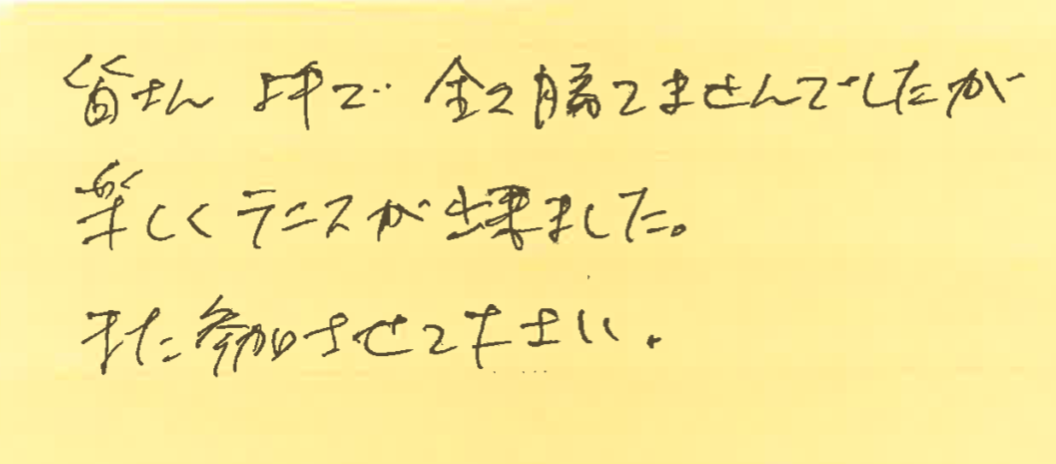 皆さん 上手で 全く勝てませんでしたが
楽しくテニスが出来ました。
また参加させて下さい。